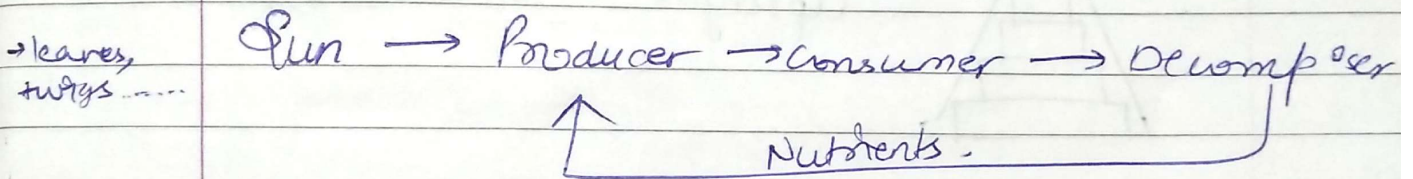 → leaves,
twigs......
Sun → Producer → Consumer → Decomposer
Nutrients.